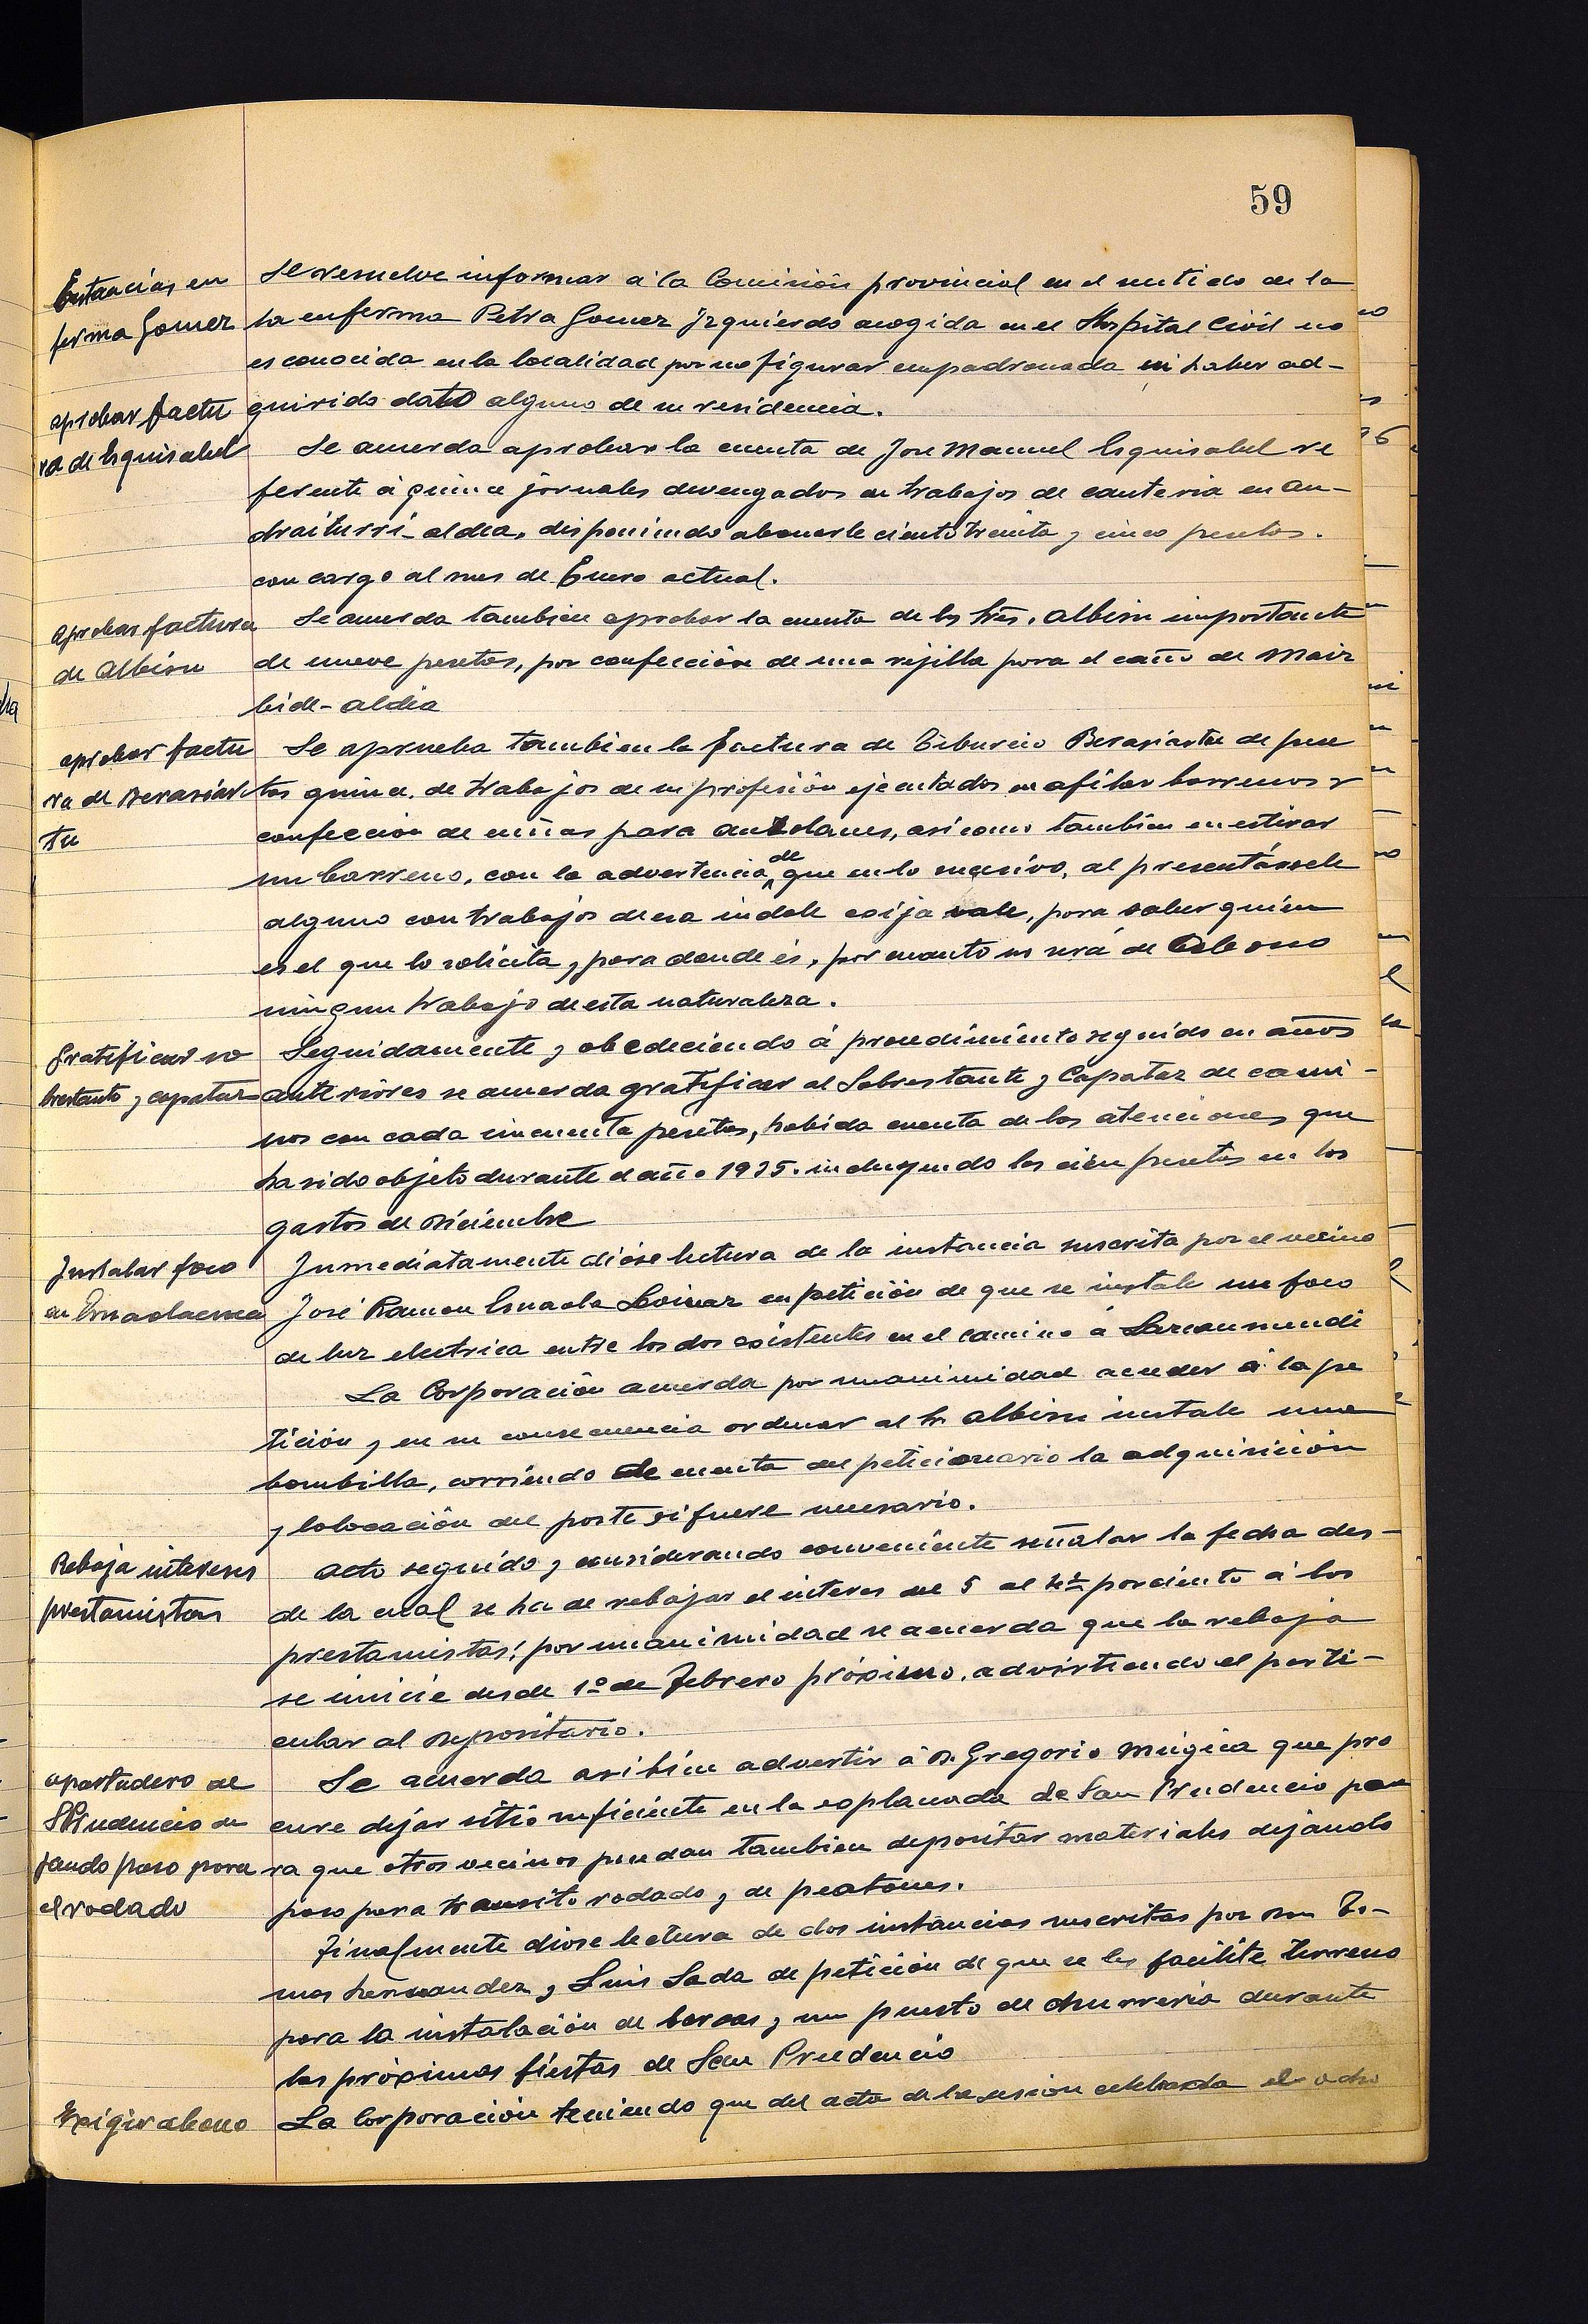 59
Estancias en
ferma Gomez
Se resuelve informar á la Comisión provincial en el sentido de la
la enferma Petra Gomez Izquierdo acogida en el Hospital Civil no
es conocida en la localidad por no figurar empadronada ni haber ad-
quirido dato alguno de su residencia.
aprobar factu
ra de Esquisabel
Se acuerda aprobar la cuenta de Jose Manuel Esquisabel re
ferente á quince jornales devengados en trabajos de canteria en An-
draiturri-aldea, disponiendo abonarle ciento treinta y cinco pesetas.
con cargo al mes de Enero actual.
Aprobar factura
de Albisu
Se acuerda tambien aprobar la cuenta de los Sres. Albisu importante
de nueve pesetas, por confección de una rejilla para el caño de Maiz
bide-aldea
aprobar factu
ra de Berasiar
tu
Se aprueba tambien la factura de Tiburcio Berasiartu de pese
tas quince. de trabajos de su profesión ejecutados en afilar barrenos y
confección de cuñas para aldeanes, asi como tambien en estirar
un barreno, con la advertencia de que en lo sucesivo, al presentársele
alguno con trabajos de esa indole exija vale, para saber quien
es el que lo solicita y para donde es, por cuanto no será de abono
ningun trabajo de esta naturaleza.
Gratificar so
brestante y capataz
Seguidamente y obedeciendo á procedimiento seguido en años
anteriores se acuerda gratificar al Sobrestante y Capataz de cami-
nos con cada cincuenta pesetas, habida cuenta de las atenciones que
ha sido objeto durante el año 1935. incluyendo las cien pesetas en los
gastos de Diciembre
Instalar foco
en Ernaolaenea
Inmediatamente dióse lectura de la instancia suscrita por el vecino
José Ramon Esnaola Loinaz en petición de que se instale un foco
de luz electrica entre los dos existentes en el camino á Lazcanmendi
La Corporación acuerda por unanimidad acceder á la pe
tición y en su consecuencia ordenar al Sr Albisu instale una
bombilla, corriendo de cuenta del peticionario la adquisición
y colocación del poste si fuere necesario.
Rebaja intereses
prestamistas
Acto seguido y considerando conveniente señalar la fecha des-
de la cual se ha de rebajar el interes del 5 al 4½ por ciento á los
prestamistas; por unanimidad se acuerda que la rebaja
se inicie desde 1º de Febrero próximo, advirtiendo el parti-
cular al Depositario.
apartadero de
S Prudencio de
jando paso para
el rodado
Se acuerda asi bien advertir á D. Gregorio Múgica que pro
cure dejar sitio suficiente en la explanada de San Prudencio pa
ra que otros vecinos puedan tambien depositar materiales dejando
paso para transito rodado y de peatones.
Finalmente dióse lectura de dos instancias suscritas por Don To-
mas Hernandez y Luis Sada de petición de que se les facilite terreno
para la instalación de barcas y un puesto de churreria durante
las próximas fiestas de San Prudencio
Exigir abono
La Corporación teniendo que del acta de la sesion celebrada el ocho